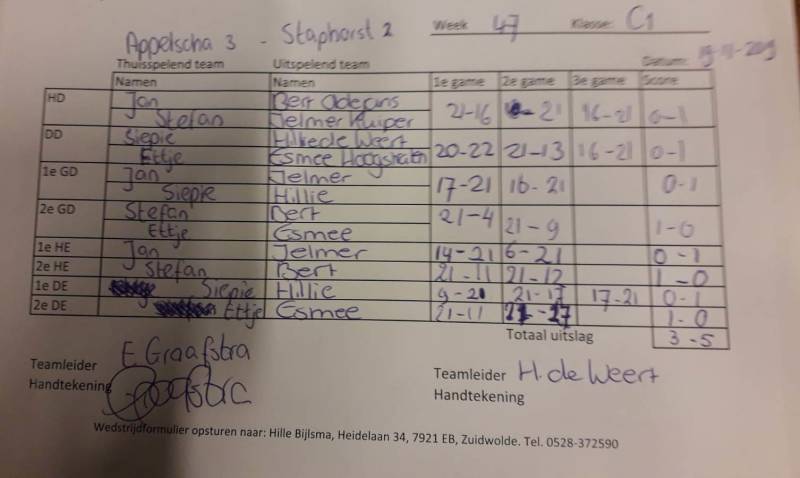 Appelscha 3 - Staphorst 2 Week 47 Klasse: C1
Thuisspelend team Uitspelend team Datum:
Namen Namen 1e game 2e game 3e game Score
HD Jan Bert
Stefan Jelmer Kuiper 21-16 21 16-21 0-1
DD Siepie Hilke de Weert
Ettje Esmee 20-22 21-13 16-21 0-1
1e GD Jan Jelmer 17-21 16-21 0-1
Siepie Hillie
2e GD Stefan Bert 21-4 21-9 1-0
Ettje Esmee
1e HE Jan Jelmer 14-21 6-21 0-1
2e HE Stefan Bert 21-11 21-12 1-0
1e DE Siepie Hillie 9-21 21-17 17-21 0-1
2e DE Ettje Esmee 21-11 1-0
Totaal uitslag 3-5
Teamleider E Graafstra Teamleider H. de Weert
Handtekening Graafstra Handtekening
Wedstrijdformulier opsturen naar: Hille Bijlsma, Heidelaan 34, 7921 EB, Zuidwolde. Tel. 0528-372590